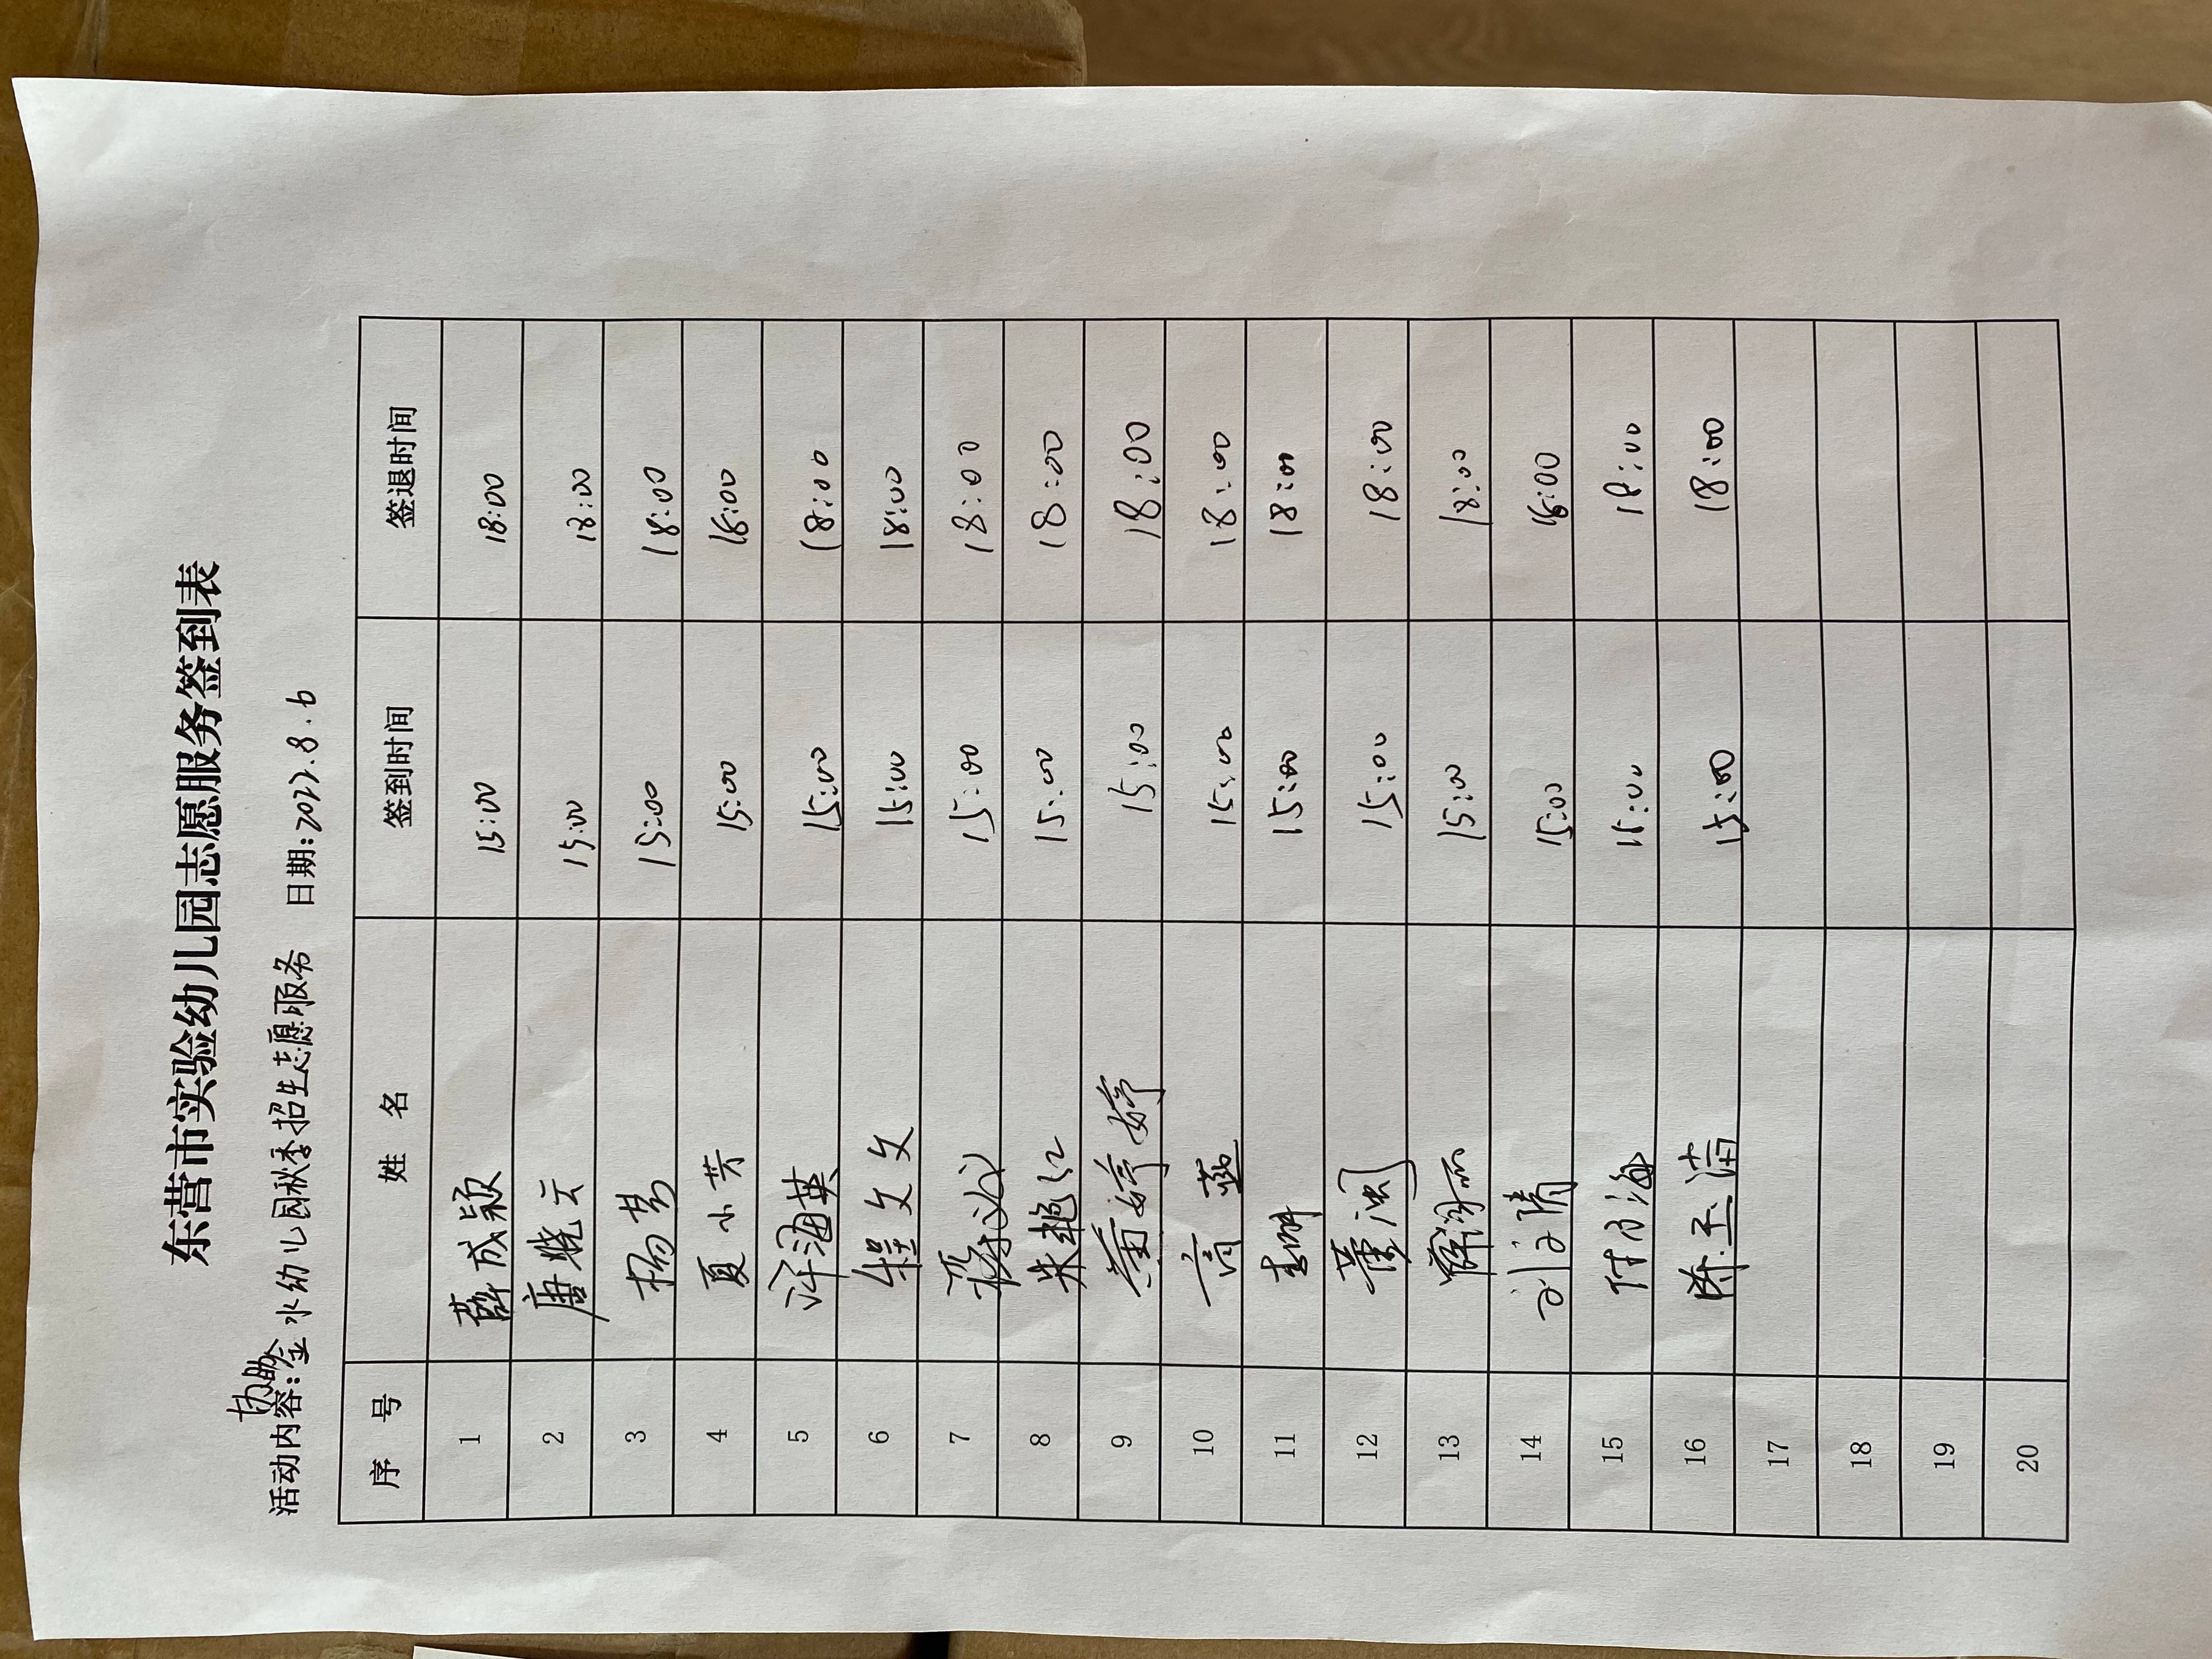 东营市实验幼儿园志愿服务签到表
协助
活动内容:金水幼儿园秋季招生志愿服务 日期:2022.8.6
序 号 姓 名 签到时间 签退时间
1 薛成颖 15:00 18:00
2 唐晓云 15:00 18:00
3 杨梦 15:00 18:00
4 夏小芳 15:00 18:00
5 许海英 15:00 18:00
6 程文文 15:00 18:00
7 15:00 18:00
8 朱艳红 15:00 18:00
9 黄婷婷 15:00 18:00
10 高燕 15:00 18:00
11 15:00 18:00
12 董 15:00 18:00
13 薛 15:00 18:00
14 刘 15:00 18:00
15 付 海 15:00 18:00
16 陈玉 15:00 18:00
17
18
19
20